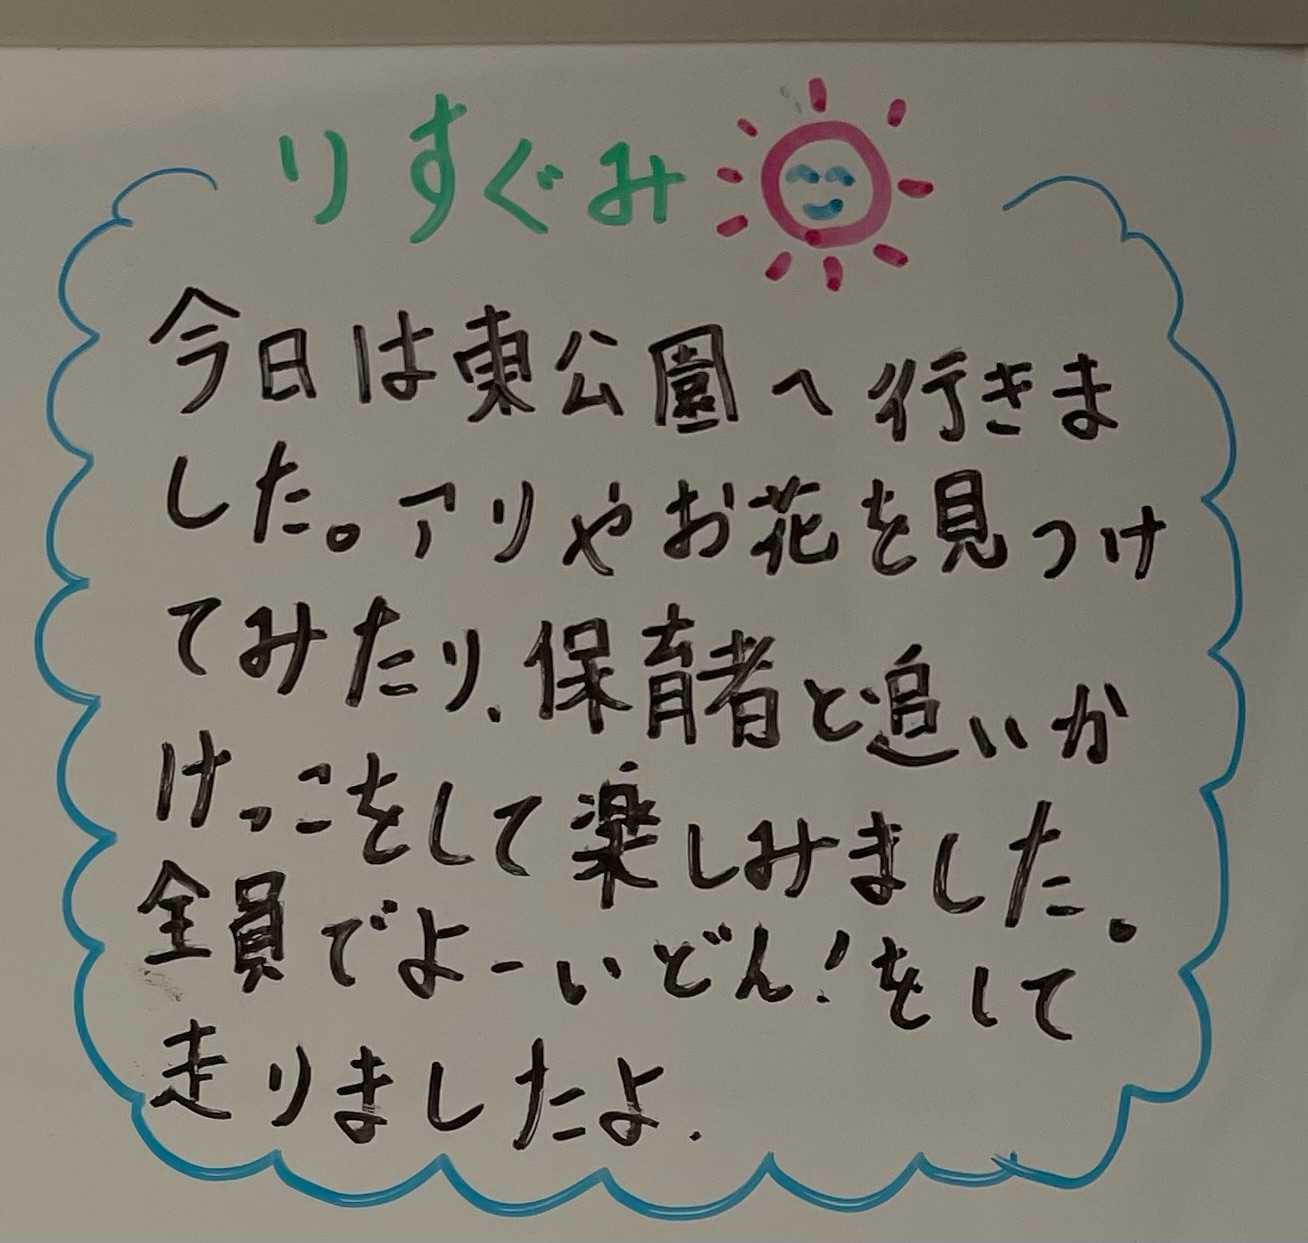 りすぐみ
今日は東公園へ行きま
した。アリやお花を見つけ
てみたり、保育者と追いか
けっこをして楽しみました。
全員でよーいどん!をして
走りましたよ.